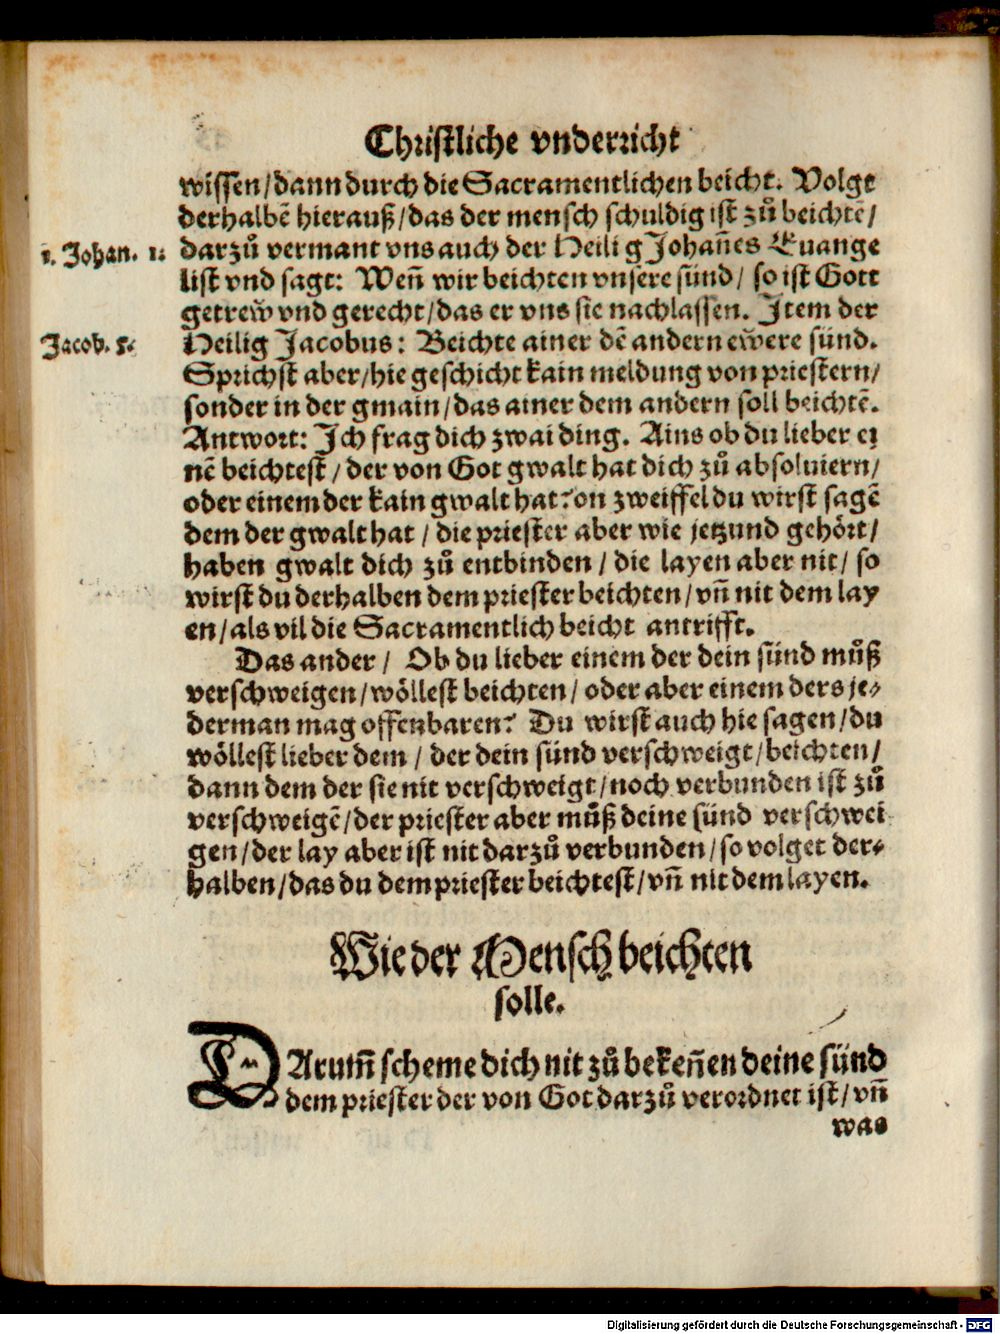 Christliche vnderricht
wissen/dann durch die Sacramentlichen beicht. Volgt
derhalbē hierauß/das der mensch schuldig ist zů beichtē/
1. Johan. 1. darzů vermant vns auch der Heilig Johañes Euange
list vnd sagt: Weñ wir beichten vnsere sünd/ so ist Gott
getrew̃ vnd gerecht/das er vns sie nachlassen. Item der
Jacob. 5. Heilig Jacobus: Beichte ainer dē andern ew̃ere sünd.
Sprichst aber/hie geschicht kain meldung von priestern/
sonder in der gmain/das ainer dem andern soll beichtē.
Antwort: Ich frag dich zwai ding. Ains ob du lieber ei
nē beichtest/der von Got gwalt hat dich zů absoluiern/
oder einem der kain gwalt hat? on zweiffel du wirst sagē
dem der gwalt hat/ die priester aber wie jetzund gehört/
haben gwalt dich zů entbinden/ die layen aber nit/ so
wirst du derhalben dem priester beichten/vñ nit dem lay
en/als vil die Sacramentlich beicht antrifft.
Das ander/ Ob du lieber einem der dein sünd můß
verschweigen/wöllest beichten/ oder aber einem ders je⸗
derman mag offenbaren? Du wirst auch hie sagen/du
wöllest lieber dem/ der dein sünd verschweigt/beichten/
dann dem der sie nit verschweigt/noch verbunden ist zů
verschweigē/der priester aber můß deine sünd verschwei
gen/der lay aber ist nit darzů verbunden/so volget der⸗
halben/das du dem priester beichtest/vñ nit dem layen.
Wie der Mensch beichten
solle.
DArum̃ scheme dich nit zů bekeñen deine sünd
dem priester der von Got darzů verordnet ist/vñ
was
Digitalisierung gefördert durch die Deutsche Forschungsgemeinschaft - DFG